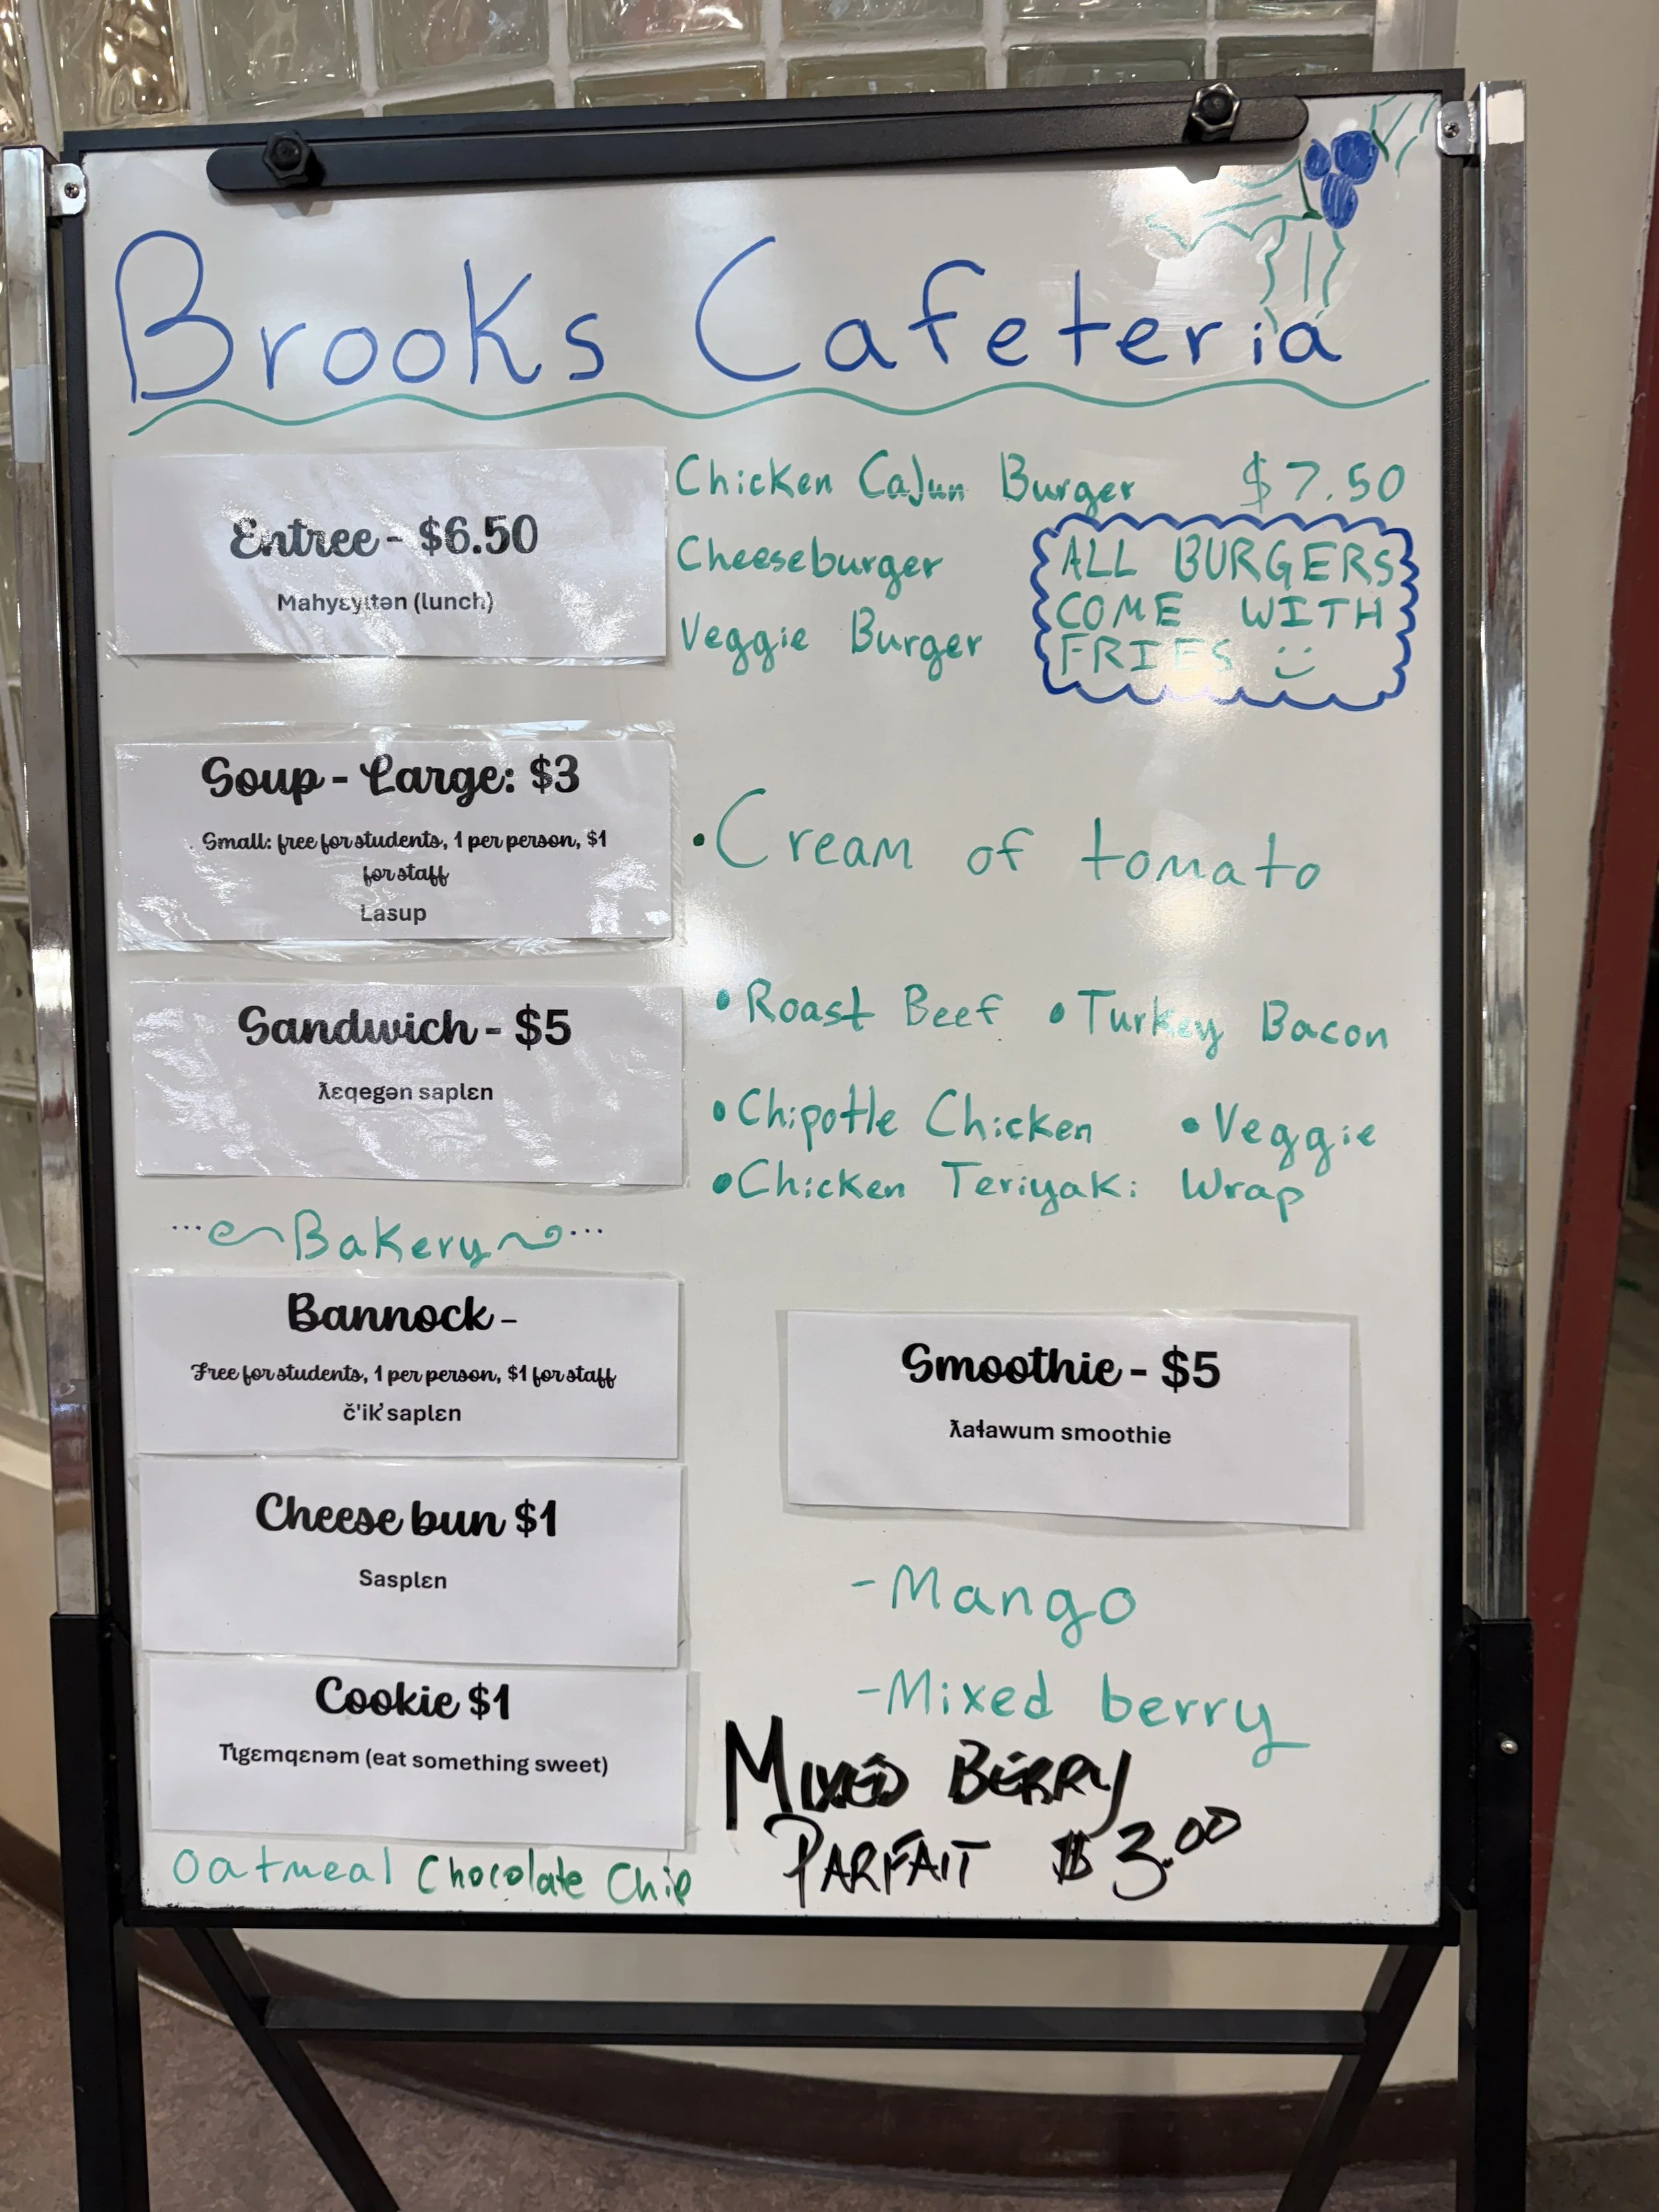 Brooks Cafeteria
Entree - $6.50
Mahyɛyɩtən (lunch)
Chicken Cajun Burger $7.50
Cheeseburger
Veggie Burger
ALL BURGERS
COME WITH
FRIES :)
Soup - Large: $3
Small: free for students, 1 per person, $1
for staff
Lasup
• Cream of tomato
Sandwich - $5
ƛɛqegən saplɛn
• Roast Beef • Turkey Bacon
• Chipotle Chicken • Veggie
• Chicken Teriyaki Wrap
Bakery
Bannock -
Free for students, 1 per person, $1 for staff
č'ik̓ saplɛn
Cheese bun $1
Sasplɛn
Cookie $1
T̓ɩgɛmqɛnəm (eat something sweet)
Oatmeal Chocolate Chip
Smoothie - $5
ƛaɬawum smoothie
- Mango
- Mixed berry
MIXED BERRY
PARFAIT $3.00